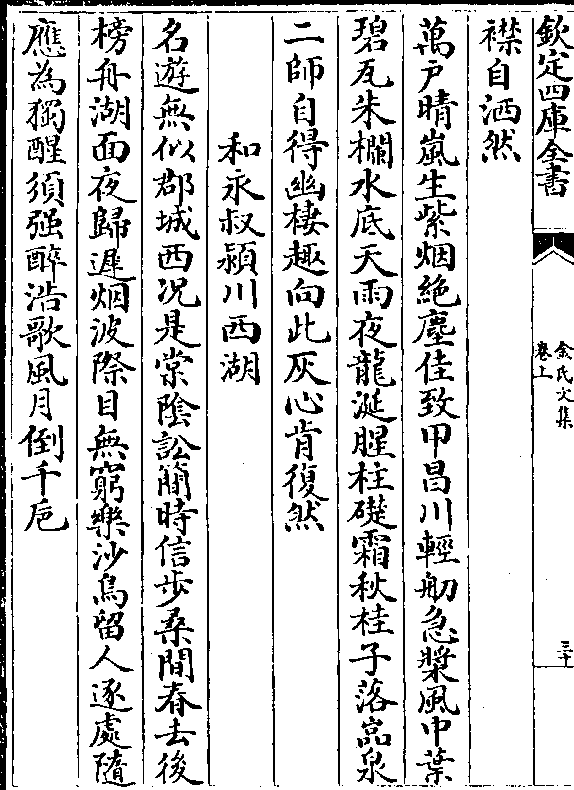 欽定四庫全書
金氏文集
卷上
三十
襟自洒然
萬戶晴嵐生紫烟絶塵佳致甲昌川輕舠急槳風中葉
碧瓦朱欄水底天雨夜龍涎腥柱礎霜秋桂子落嵓泉
二師自得幽棲趣向此灰心肯復然
和永叔潁川西湖
名遊無似郡城西况是棠隂訟簡時信步桑間春去後
榜舟湖面夜歸遲烟波際目無窮樂沙鳥留人逐處隨
應為獨醒須强醉浩歌風月倒千巵